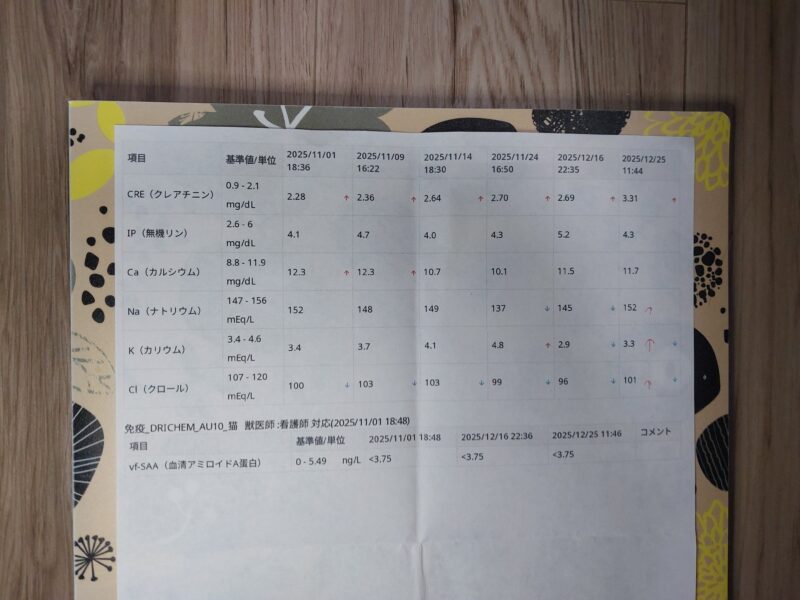 項目 基準値/単位 2025/11/01 18:36 2025/11/09 16:22 2025/11/14 18:30 2025/11/24 16:50 2025/12/16 22:35 2025/12/25 11:44
CRE（クレアチニン） 0.9 - 2.1 mg/dL 2.28 ↑ 2.36 ↑ 2.64 ↑ 2.70 ↑ 2.69 ↑ 3.31 ↑
IP（無機リン） 2.6 - 6 mg/dL 4.1 4.7 4.0 4.3 5.2 4.3
Ca（カルシウム） 8.8 - 11.9 mg/dL 12.3 ↑ 12.3 ↑ 10.7 10.1 11.5 11.7
Na（ナトリウム） 147 - 156 mEq/L 152 148 149 137 ↓ 145 ↓ 152 ↑
K（カリウム） 3.4 - 4.6 mEq/L 3.4 3.7 4.1 4.8 ↑ 2.9 ↓ 3.3 ↑ ↓
Cl（クロール） 107 - 120 mEq/L 100 ↓ 103 ↓ 103 ↓ 99 ↓ 96 ↓ 101 ↑ ↓
免疫_DRICHEM_AU10_猫 獣医師 :看護師 対応(2025/11/01 18:48)
項目 基準値/単位 2025/11/01 18:48 2025/12/16 22:36 2025/12/25 11:46 コメント
vf-SAA（血清アミロイドA蛋白） 0 - 5.49 ng/L <3.75 <3.75 <3.75